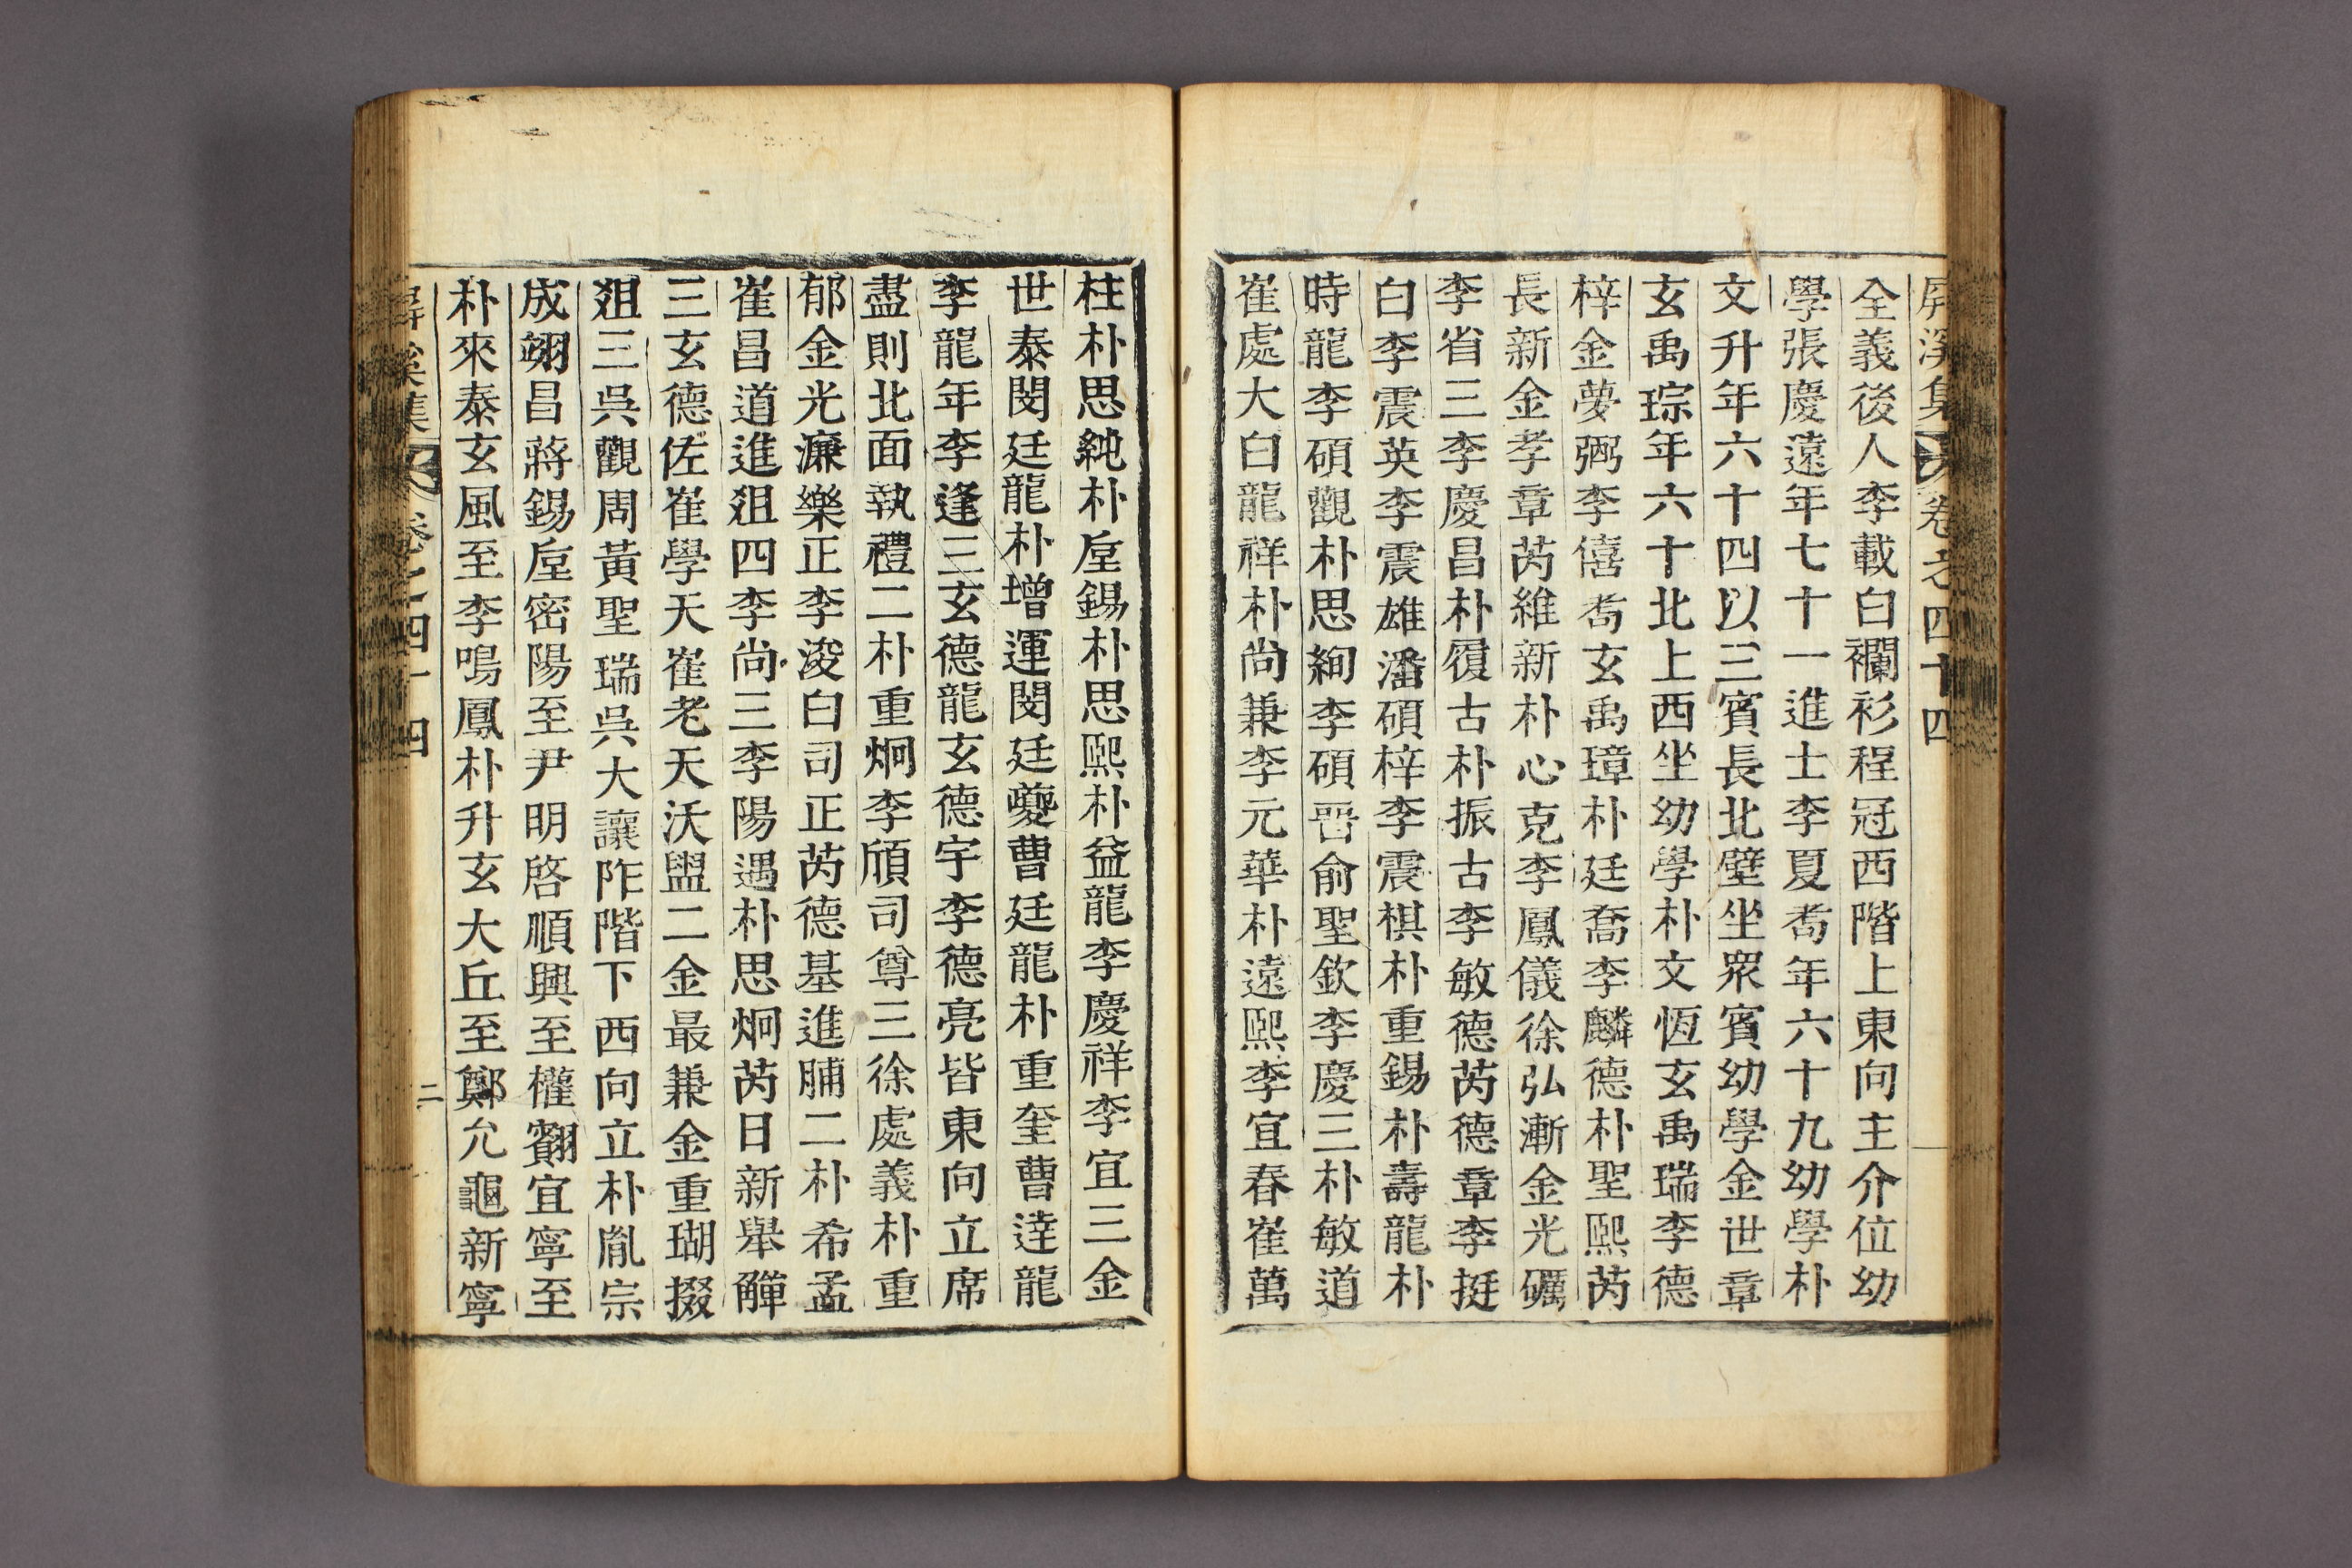 屛溪集 卷之四十四
全義後人李載白襴衫程冠西階上東向主介位幼
學張慶遠年七十一進士李夏喬年六十九幼學朴
文升年六十四以三賓長北壁坐衆賓幼學金世章
玄禹琮年六十北上西坐幼學朴文恆玄禹瑞李德
梓金夢弼李僖喬玄禹璋朴廷喬李麟德朴聖熙芮
長新金孝章芮維新朴心克李鳳儀徐弘漸金光礪
李省三李慶昌朴履古朴振古李敏德芮德章李挺
白李震英李震雄潘碩梓李震棋朴重錫朴壽龍朴
時龍李碩觀朴思絢李碩晋俞聖欽李慶三朴敏道
崔處大白龍祥朴尙兼李元華朴遠熙李宜春崔萬
柱朴思純朴垕錫朴思熙朴益龍李慶祥李宜三金
世泰閔廷龍朴增運閔廷夔曹廷龍朴重奎曹逵龍
李龍年李逢三玄德龍玄德宇李德亮皆東向立席
盡則北面執禮二朴重炯李頎司尊三徐處義朴重
郁金光濂樂正李浚白司正芮德基進脯二朴希孟
崔昌道進俎四李尙三李陽遇朴思炯芮日新舉觶
三玄德佐崔學天崔老天沃盥二金最兼金重瑚掇
俎三吳觀周黃聖瑞吳大讓阼階下西向立朴胤宗
成翊昌蔣錫垕密陽至尹明啓順興至權翻宜寧至
朴來泰玄風至李鳴鳳朴升玄大丘至鄭允龜新寧
屛溪集 卷之四十四 二